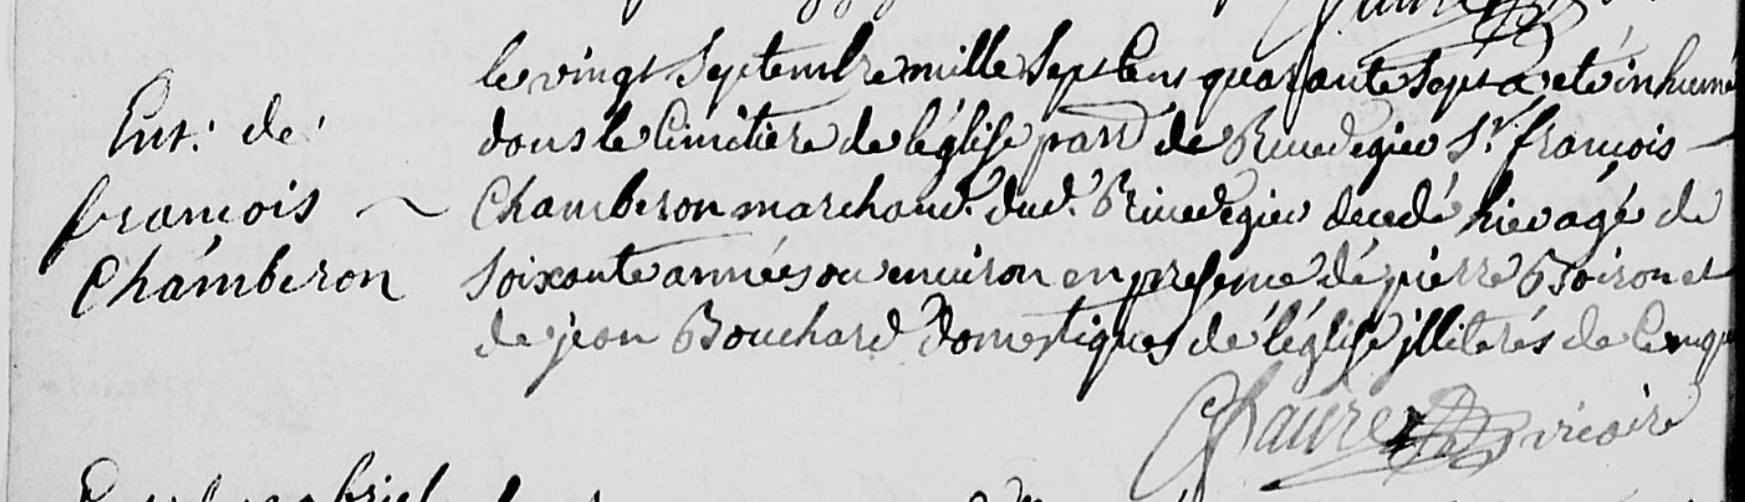 Ent. de
françois
Chamberon
le vingt Septembre mille Sept Cens quarante Sept a été inhumé
dans le Cimitiere de l'églisse parr de St. françois
Chamberon marchand. dud. decedé hier agé de
Soixante années ou environ en presence de pierre Boiron et
de jean Bouchard domestiques de l'église jlliterés de Ce
vicaire